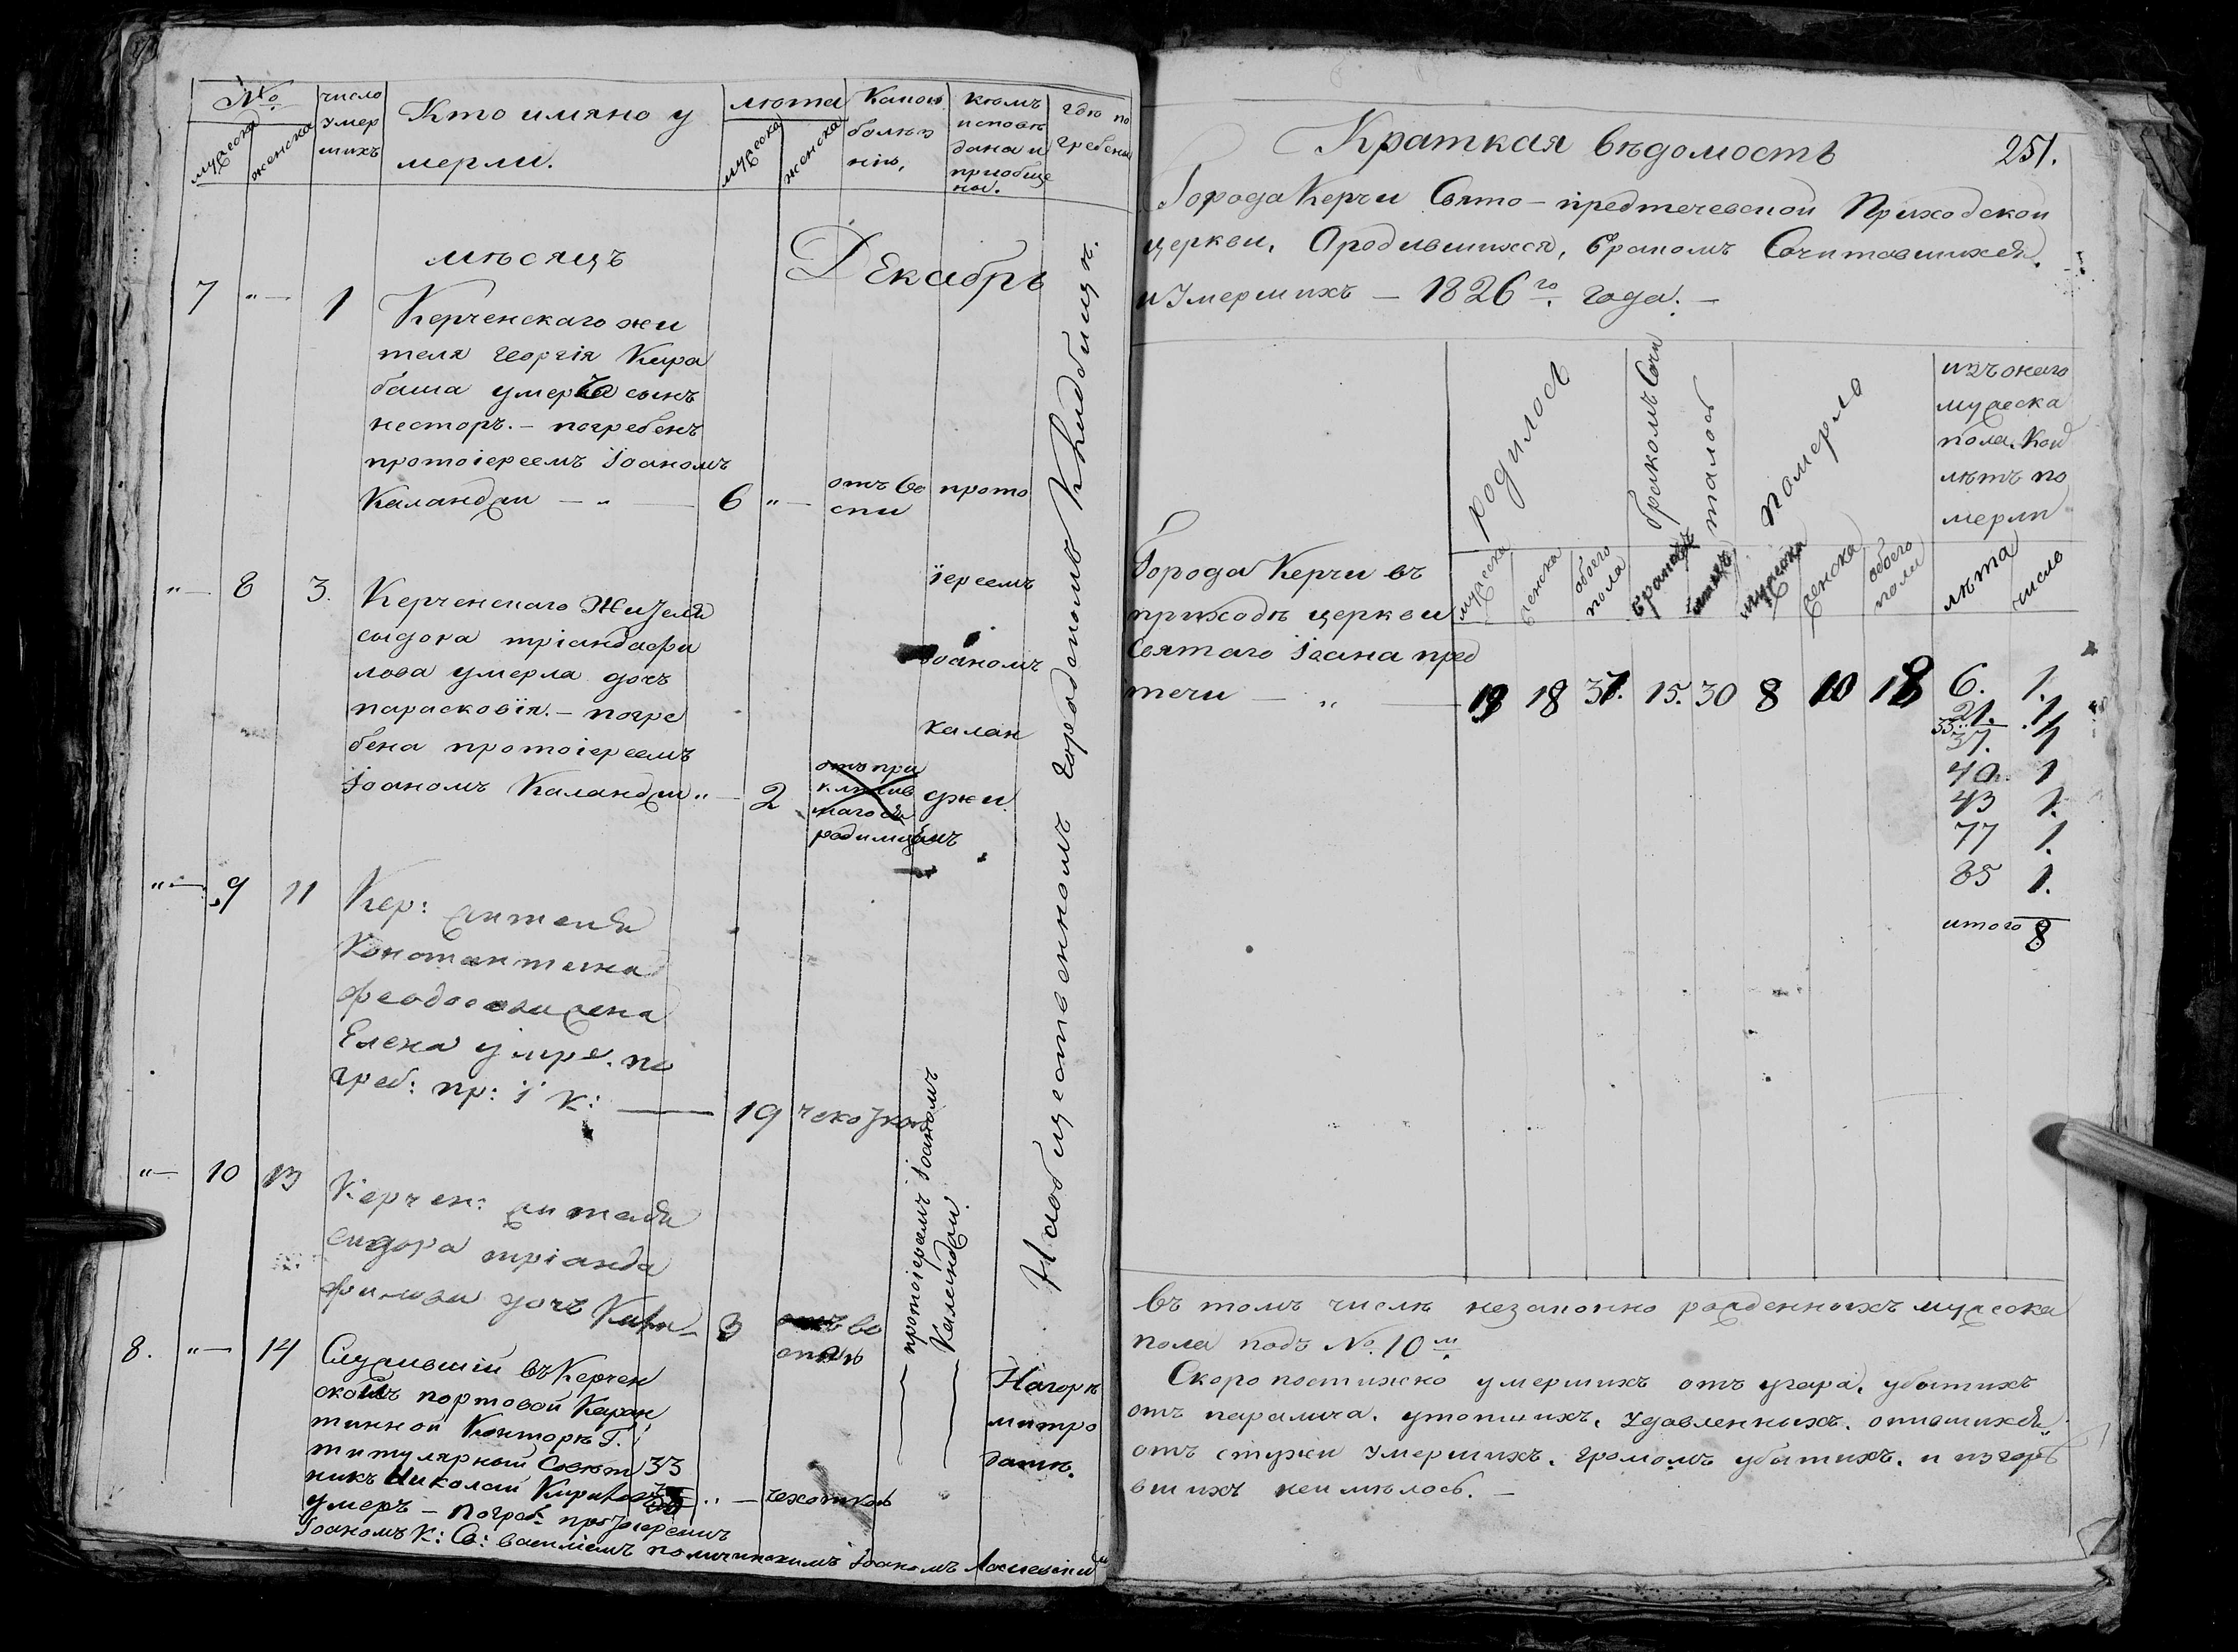 №
мужеска
женска
число умер шихъ
Кто имяно у мерли.
люта
мужеска
женска
Какою болѣз нію,
кемъ исповѣ дана и приобще ны.
гдѣ по гребены
мѣсяцъ Декабрь
7 "— 1 Керченскаго жи
теля Георгія Кара
баша умеръ сынъ
несторъ. — погребенъ
протоіереемъ Іоаномъ
Каланджи — " — 6 "— отъ во спи
прото
іереемъ
Іоаномъ
калан
джи.
"— 8 3. Керченскаго Жителя
сидора тріандафи
лова умерла дочь
парасковія. — погре
бена протоіереемъ
Іоаномъ Каланджи " — 2
родимцемъ
"— 9 11 Кер: жителя
Константина
жена
Елена умре. по
греб: пр: і К: — 19 чахоткою
"— 10 13 Керчен: жителя
сидора тріанда
филова дочь — 3 отъ во спы
протоіереемъ Іоаномъ
Каланджи.
8. "— 14 Служившій въ Керчен
ской портовой Каран
тинной Конторѣ Г.
титулярный Совѣт 33
никъ Николай
умеръ — погреб: протоіереемъ " — чахоткою
Іоаномъ К: Св: василіемъ Іоаномъ
На горѣ
митро
датѣ.
На общественномъ городскомъ Кладбищѣ.
251.
Краткая вѣдомость
Города Керчи Свято-предтечевской Приходской
церкви. О родившихся, бракомъ Сочитавшихся.
и Умершихъ — 1826го. года. —
родилось
бракомъ Соч талось
померло
изъ онаго
мужеска
пола. Кои
лѣтъ по
мерли
мужеска
женска
обоего пола
браковъ
мужеска
женска
обоего пола
лѣта
число
Города Керчи въ
приходѣ церкви
Святаго Іоана пред
течи — " — 19 18 37. 15. 30 8 10 18
6. 1.
21. 1.
33. 1
37. 1
40. 1
43 1.
77 1.
85 1.
итого 8
въ томъ числѣ незаконно рожденныхъ мужеска
пола подъ № 10м.
Скоропостижно умершихъ отъ угара, убитыхъ
отъ паралича, утопшихъ, удавленныхъ, опившихся
отъ стужи умершихъ, громомъ убитыхъ, и изгорѣ
вшихъ неимѣлось. —